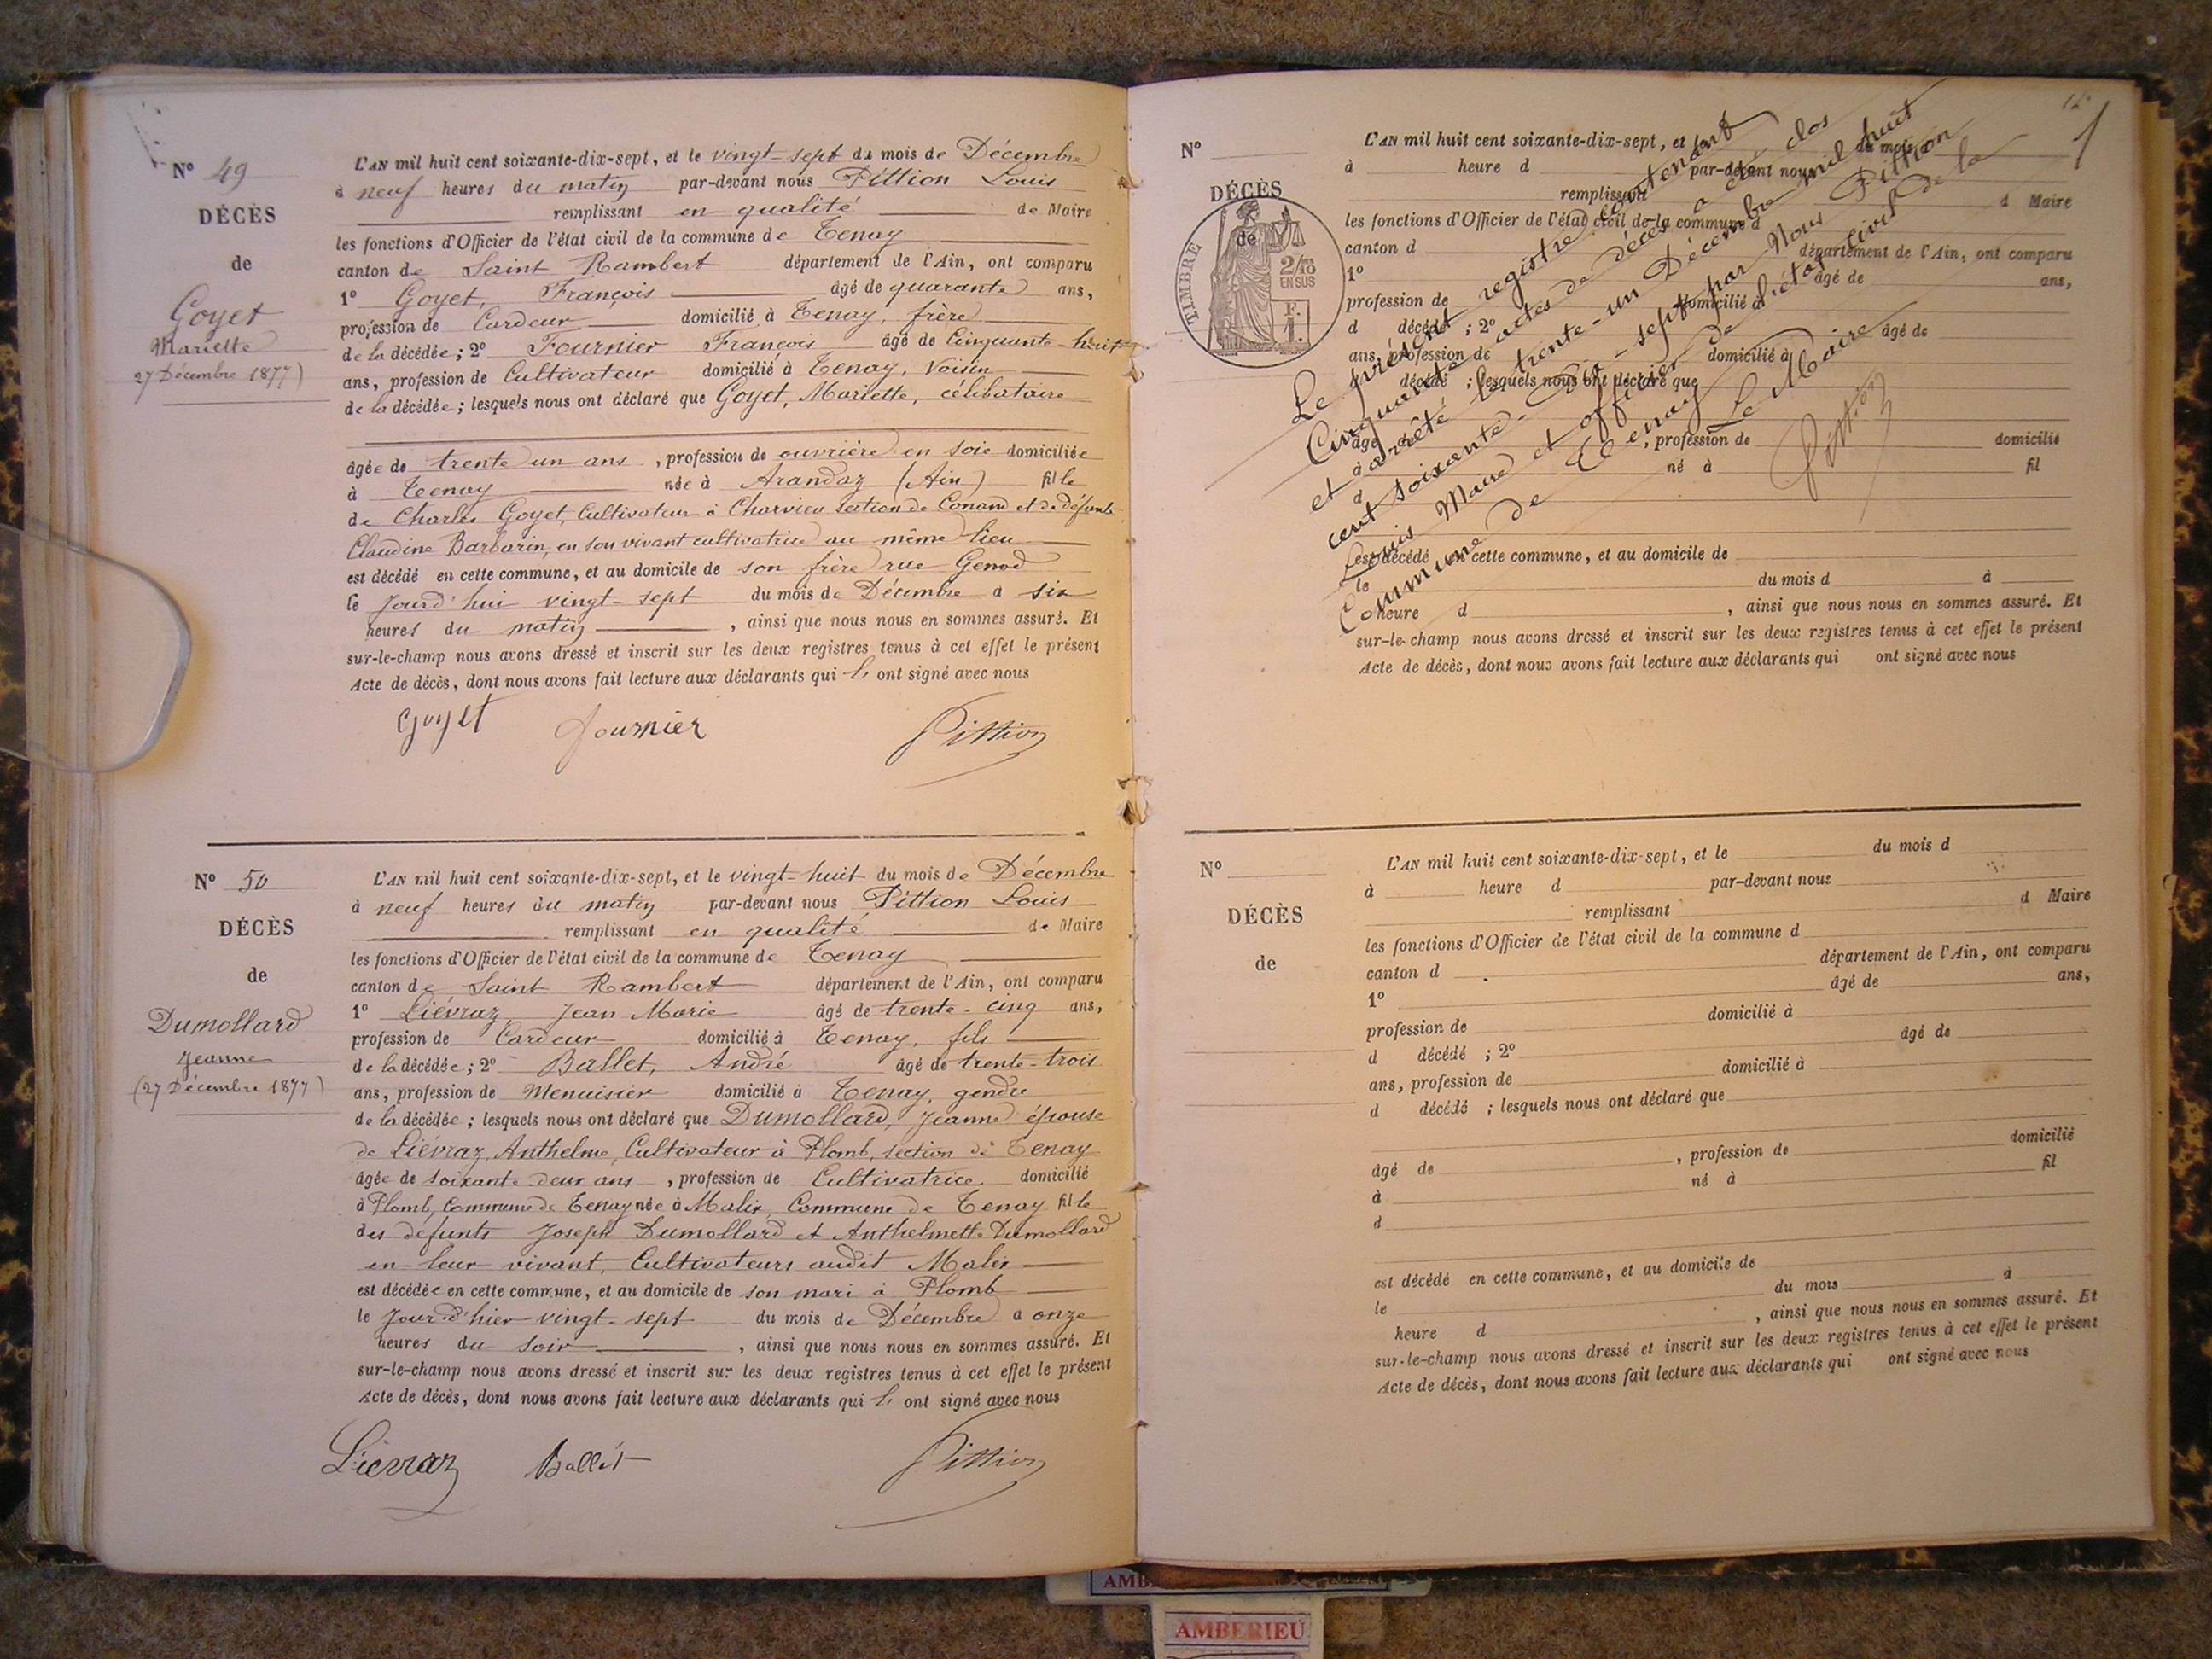 Nº 49
DÉCÈS
de
Goyet
Mariette
27 Décembre 1877)
L'AN mil huit cent soixante-dix-sept, et le vingt-sept du mois de Décembre
à neuf heures du matin par-devant nous Pittion Louis
remplissant en qualité de Maire
les fonctions d'Officier de l'état civil de la commune de Tenay
canton de Saint Rambert département de l'Ain, ont comparu
1º Goyet, François âgé de quarante ans,
profession de Cardeur domicilié à Tenay, frère
de la décédée; 2º Fournier François âgé de Cinquante-huit
ans, profession de Cultivateur domicilié à Tenay, Voisin
de la décédée; lesquels nous ont déclaré que Goyet, Mariette, célibataire
âgée de trente un ans, profession de ouvrière en soie domiciliée
à Tenay née à Arandaz (Ain) fille
de Charles Goyet, Cultivateur à Charvieu section de Conand et de défunte
Claudine Barbarin, en son vivant cultivatrice au même lieu
est décédé en cette commune, et au domicile de son frère rue Genod
le Jourd'hui vingt-sept du mois de Décembre à six
heures du matin, ainsi que nous nous en sommes assuré. Et
sur-le-champ nous avons dressé et inscrit sur les deux registres tenus à cet effet le présent
Acte de décès, dont nous avons fait lecture aux déclarants qui ont signé avec nous
Goyet Fournier Pittion
Nº 50
DÉCÈS
de
Dumollard
Jeanne
(27 Décembre 1877)
L'AN mil huit cent soixante-dix-sept, et le vingt-huit du mois de Décembre
à neuf heures du matin par-devant nous Pittion Louis
remplissant en qualité de Maire
les fonctions d'Officier de l'état civil de la commune de Tenay
canton de Saint Rambert département de l'Ain, ont comparu
1º Liévraz, Jean Marie âgé de trente-cinq ans,
profession de Cardeur domicilié à Tenay, fils
de la décédée; 2º Ballet, André âgé de trente-trois
ans, profession de Menuisier domicilié à Tenay, gendre
de la décédée; lesquels nous ont déclaré que Dumollard, Jeanne épouse
de Liévraz, Anthelme, Cultivateur à Plomb, section de Tenay
âgée de soixante deux ans, profession de Cultivatrice domicilié
à Plomb, Commune de Tenay née à Malix, Commune de Tenay fille
des défunts Joseph Dumollard et Anthelmette Dumollard
en leur vivant, Cultivateurs audit Malix
est décédée en cette commune, et au domicile de son mari à Plomb
le Jour d'hier vingt-sept du mois de Décembre à onze
heures du soir, ainsi que nous nous en sommes assuré. Et
sur-le-champ nous avons dressé et inscrit sur les deux registres tenus à cet effet le présent
Acte de décès, dont nous avons fait lecture aux déclarants qui ont signé avec nous
Liévraz Ballet Pittion
Nº
DÉCÈS
de
TIMBRE
2/10
EN SUS
F.
1.
L'AN mil huit cent soixante-dix-sept, et le du mois
à heure d par-devant nous
remplissant d Maire
les fonctions d'Officier de l'état civil de la commune d
canton d département de l'Ain, ont comparu
1º âgé de ans,
profession de domicilié à
d décédé ; 2º âgé de
ans, profession de domicilié à
décédé ; lesquels nous ont déclaré que
âgé , profession de domicilié
à né à fil
d
est décédé en cette commune, et au domicile de
le du mois d à
heure d , ainsi que nous nous en sommes assuré. Et
sur-le-champ nous avons dressé et inscrit sur les deux registres tenus à cet effet le présent
Acte de décès, dont nous avons fait lecture aux déclarants qui ont signé avec nous
Le présent registre contenant
Cinquante actes de décès a été clos
et arrêté le trente-un Décembre mil huit
cent soixante-dix-sept par Nous Pittion
Louis Maire et officier de l'état civil de la
Commune de Tenay Le Maire
Pittion
Nº
DÉCÈS
de
L'AN mil huit cent soixante-dix-sept, et le du mois d
à heure d par-devant nous
remplissant d Maire
les fonctions d'Officier de l'état civil de la commune d
canton d département de l'Ain, ont comparu
1º âgé de ans,
profession de domicilié à
d décédé ; 2º âgé de
ans, profession de domicilié à
d décédé ; lesquels nous ont déclaré que
âgé de , profession de domicilié
à né à fil
d
est décédé en cette commune, et au domicile de
le du mois à
heure d , ainsi que nous nous en sommes assuré. Et
sur-le-champ nous avons dressé et inscrit sur les deux registres tenus à cet effet le présent
Acte de décès, dont nous avons fait lecture aux déclarants qui ont signé avec nous
AMBERIEU